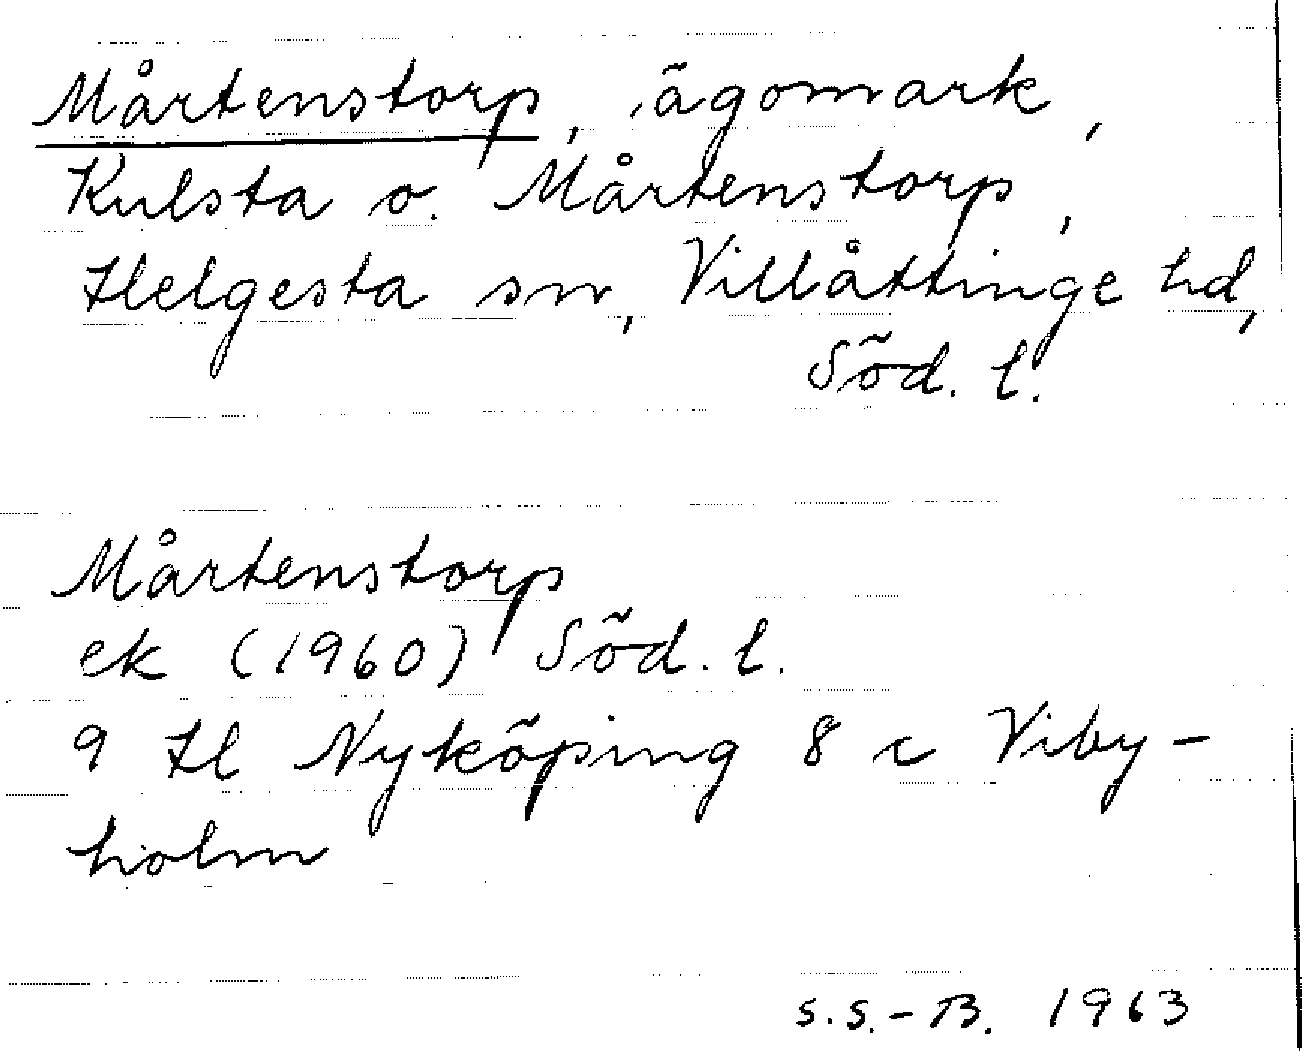 Mårtenstorp, ägomark,
Kulsta o. Mårtenstorp,
Helgesta sn, Villåttinge hd,
Söd. l.
Mårtenstorp
ek (1960) Söd. l.
9 H Nyköping 8 c Viby-
holm
S.S.-B. 1963